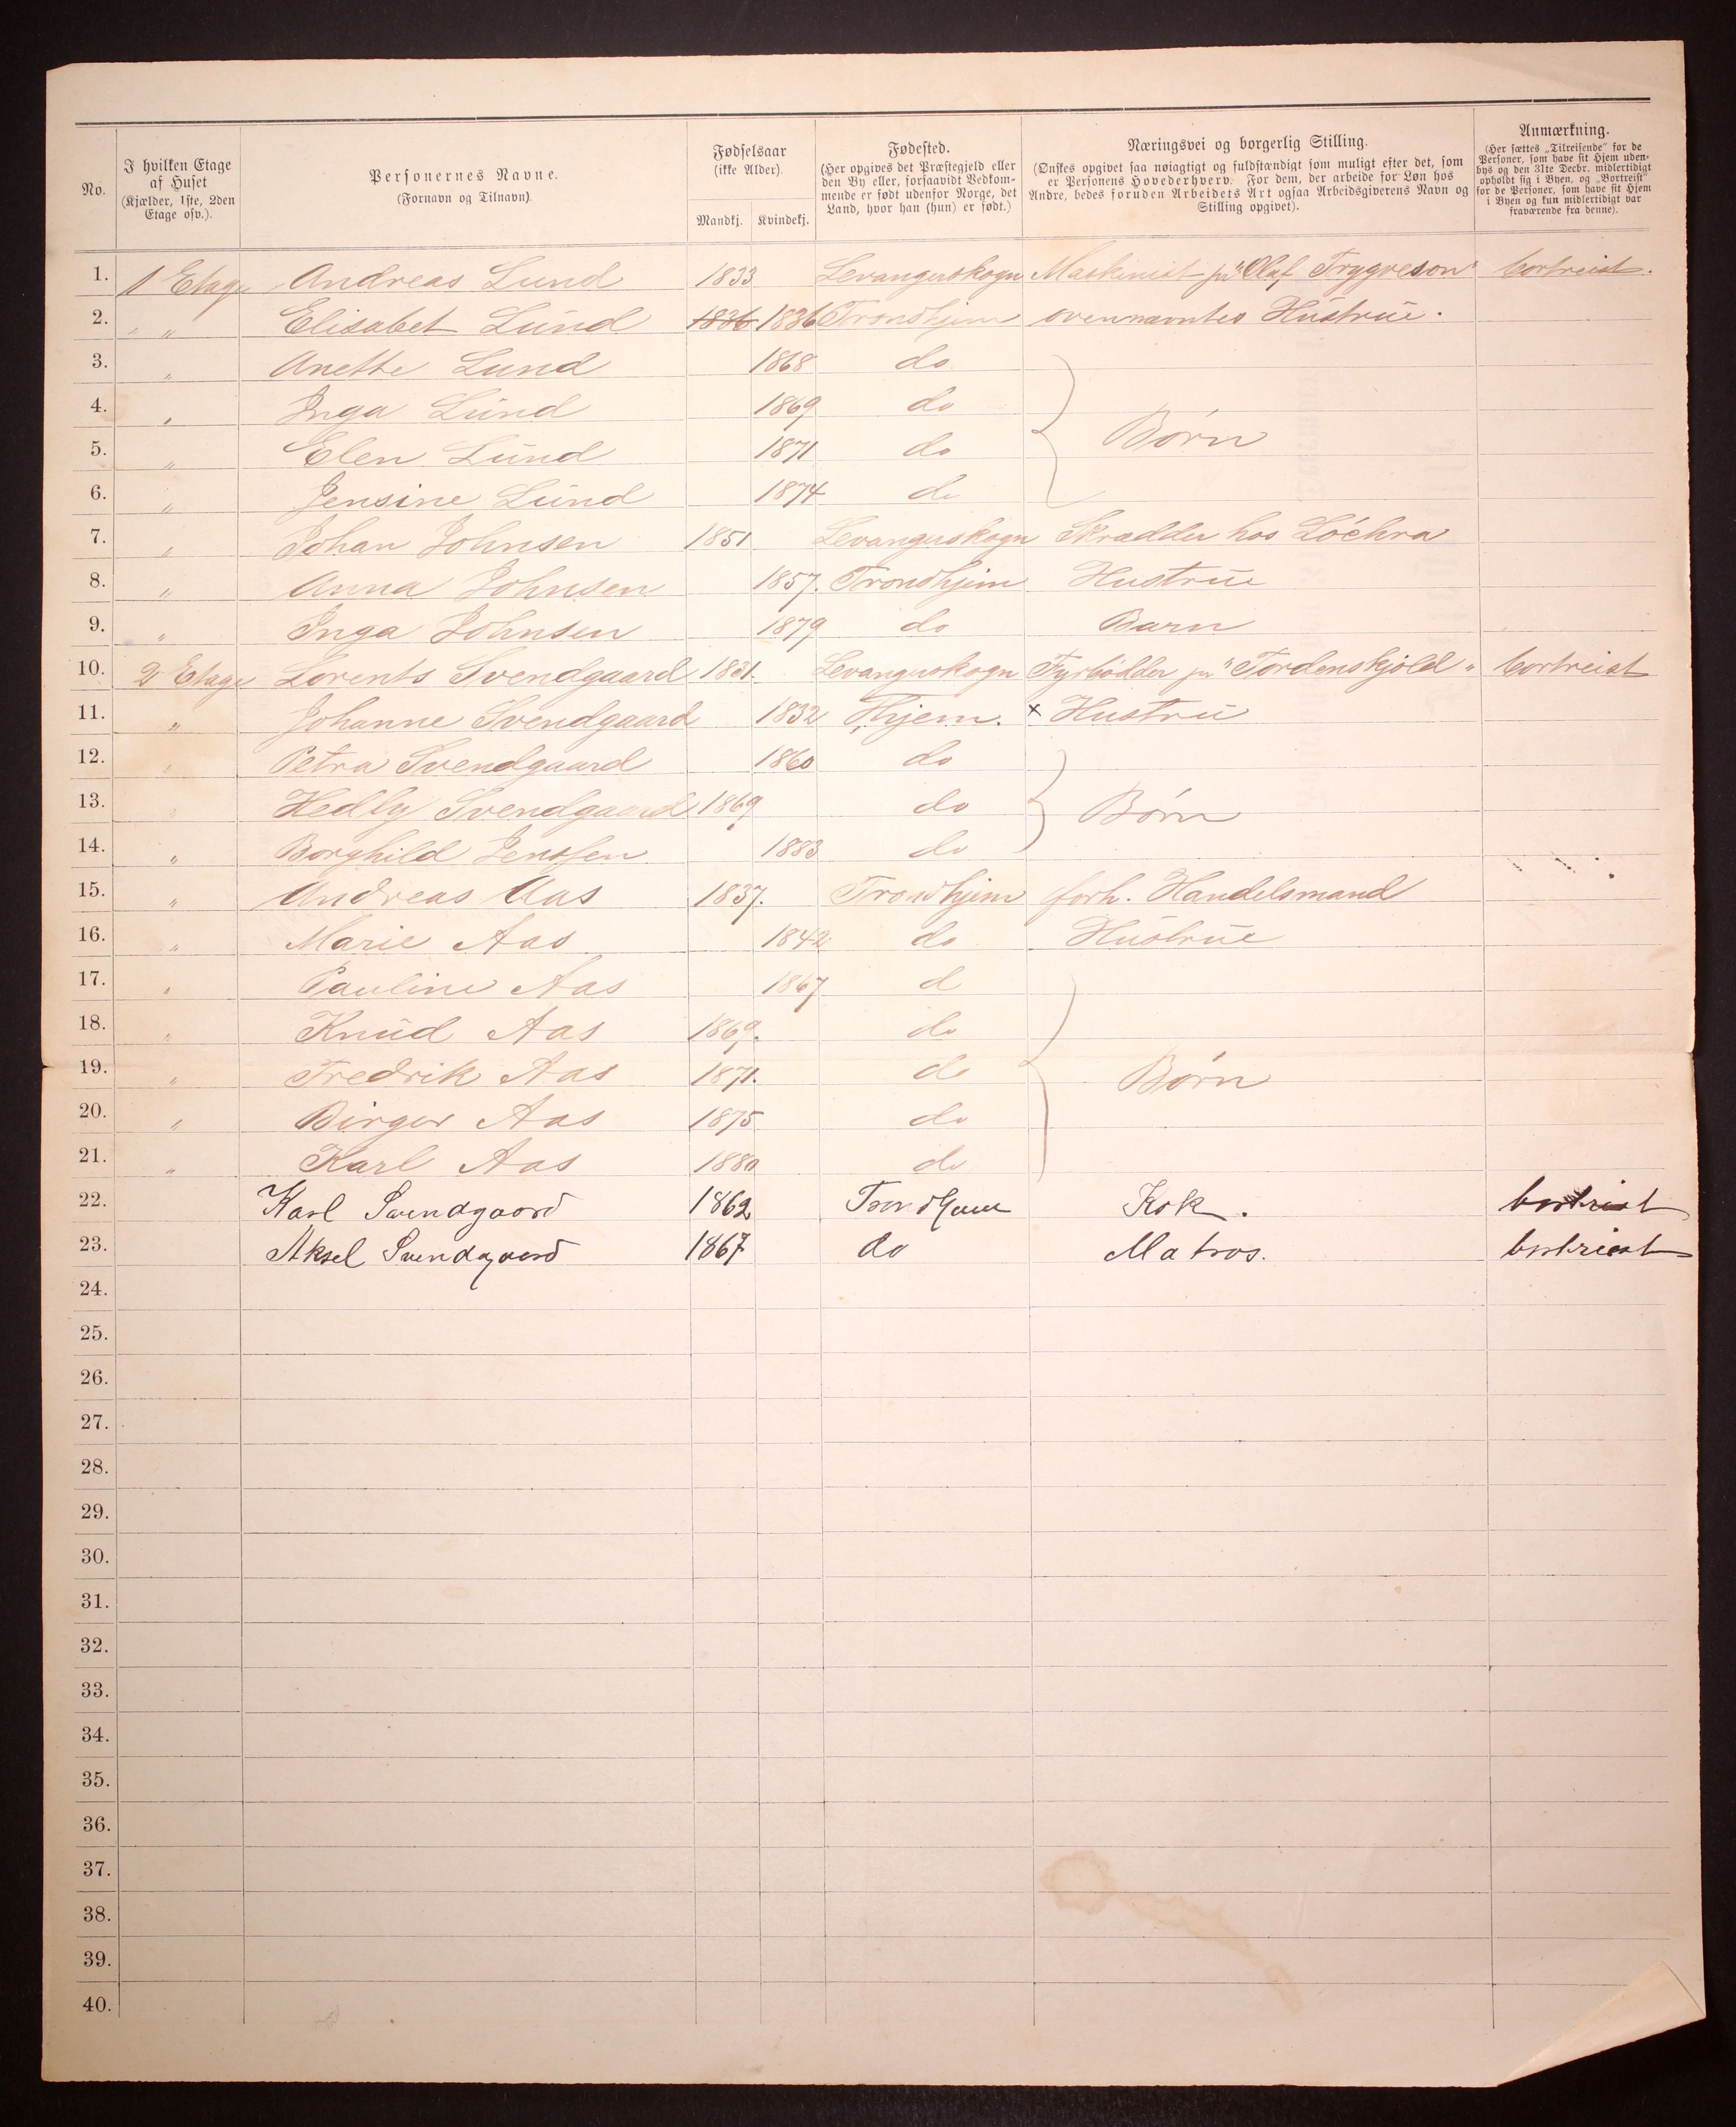 No.
I hvilken Etage
af Huset
(Kjælder, 1ste, 2den
Etage osv.).
Personernes Navne.
(Fornavn og Tilnavn).
Fødselsaar
(ikke Alder).
Mandkj. Kvindekj.
Fødested.
(Her opgives det Præstegjeld eller
den By eller, forsaavidt Vedkom-
mende er født udenfor Norge, det
Land, hvor han (hun) er født.)
Næringsvei og borgerlig Stilling.
(Ønskes opgivet saa nøiagtigt og fuldstændigt som muligt efter det, som
er Personens Hovederhverv. For dem, der arbeide for Løn hos
Andre, bedes foruden Arbeidets Art ogsaa Arbeidsgiverens Navn og
Stilling opgivet).
Anmærkning.
(Her sættes „Tilreisende" for de
Personer, som have sit Hjem uden-
bys og den 31te Decbr. midlertidigt
opholdt sig i Byen, og „Bortreist"
for de Personer, som have sit Hjem
i Byen og kun midlertidigt var
fraværende fra denne).
1. 1 Etage Andreas Lund 1833 Levangerskogn Maskinist på "Olaf Trygveson" bortreist.
2. " " Elisabet Lund 1836 1836 Trondhjem ovennævntes Hustrue.
3. " Anette Lund 1868 do
4. " Inga Lund 1869 do
5. " Elen Lund 1871 do Børn
6. " Jensine Lund 1874 do
7. " Johan Johnsen 1851 Levangerskogn Skrædder hos
8. " Anna Johnsen 1857. Trondhjem Hustrue
9. " Inga Johnsen 1879 do Barn
10. 2 Etage Lorents Svendgaard 1831. Levangerskogn Fyrbødder på "Tordenskjold" bortreist
11. " Johanne Svendgaard 1832 Thjem. × Hustru
12. " Petra Svendgaard 1860 do
13. " Hedly Svendgaard 1869 do Børn
14. " Borghild Jenssen 1883 do
15. " Andreas Aas 1837. Trondhjem forh. Handelsmand
16. " Marie Aas 1842 do Hustrue
17. " Pauline Aas 1867 d
18. " Knud Aas 1869. do
19. " Fredrik Aas 1871. do Børn
20. " Birger Aas 1875 do
21. " Karl Aas 1880 do
22. Karl Svendgaard 1862 Trondhjem Kok. bortreist
23. Aksel Svendgaard 1867 do Matros. bortreist
24.
25.
26.
27.
28.
29.
30.
31.
32.
33.
34.
35.
36.
37.
38.
39.
40.